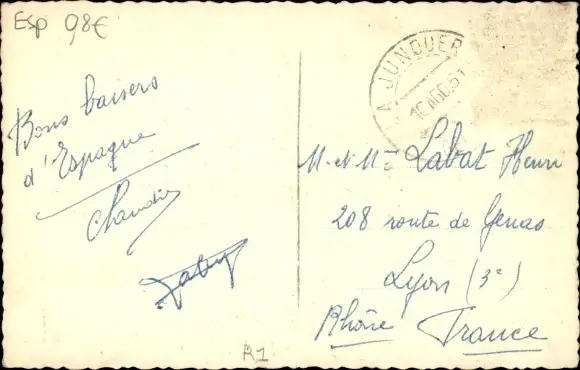 Esp 0,8€
Bons baisers
d'Espagne
A JUNQUER
10 AGO.51
M. et Mme Labat Henri
208 route de Genas
Lyon (3e)
Rhône France
R1